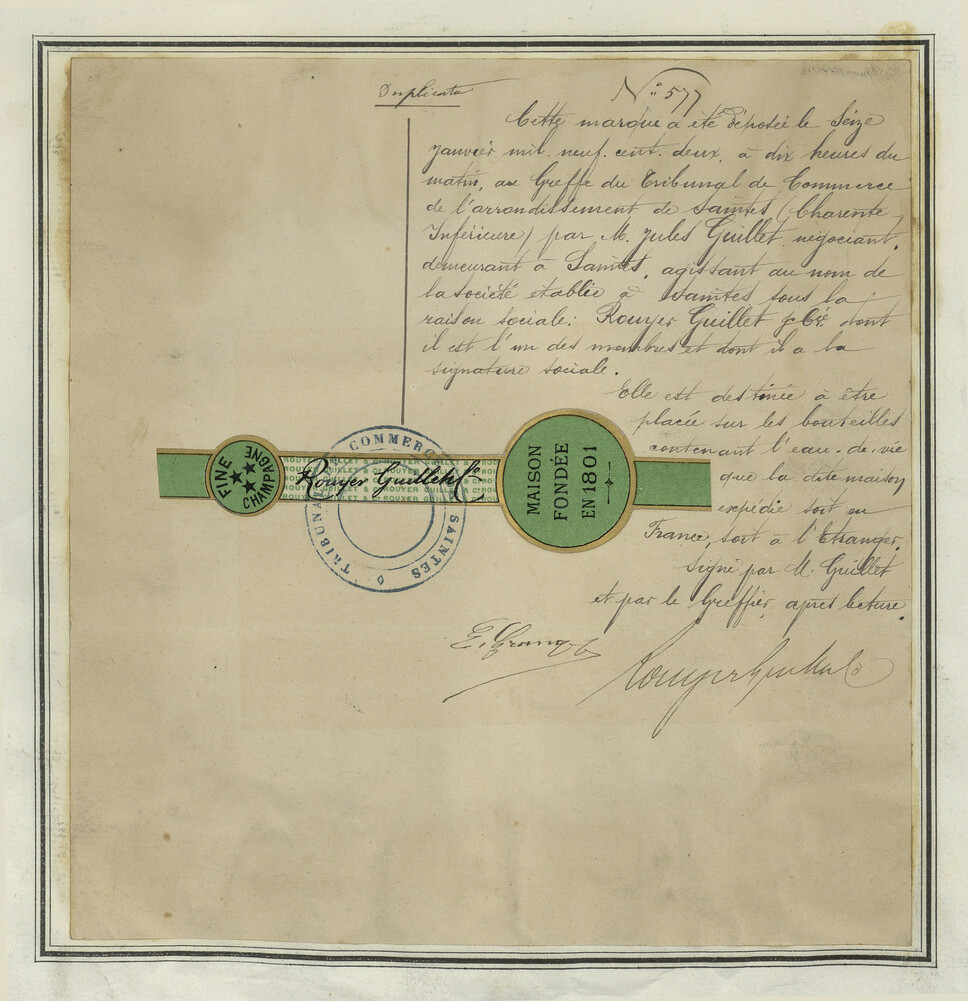 Duplicata
N° 577
Cette marque a été déposée le Seize
janvier mil. neuf. cent. deux, à dix heures du
matin, au Greffe du Tribunal de Commerce
de l'arrondissement de Saintes (Charente
Inférieure) par M. Jules Guillet, négociant,
demeurant à Saintes, agissant au nom de
la société établie à Saintes sous la
raison sociale: Rouyer Guillet & Cie dont
il est l'un des membres et dont il a la
signature sociale.
Elle est destinée à être
placée sur les bouteilles
contenant l'eau-de-vie
que la dite maison
expédie soit en
France, soit à l'Etranger.
Signé par M. Guillet
et par le Greffier, après lecture
FINE
CHAMPAGNE
ROUYER GUILLET & Co
Rouyer Guillet & Co
MAISON
FONDÉE
EN 1801
TRIBUNAL COMMERCE SAINTES
Rouyer Guillet & Co